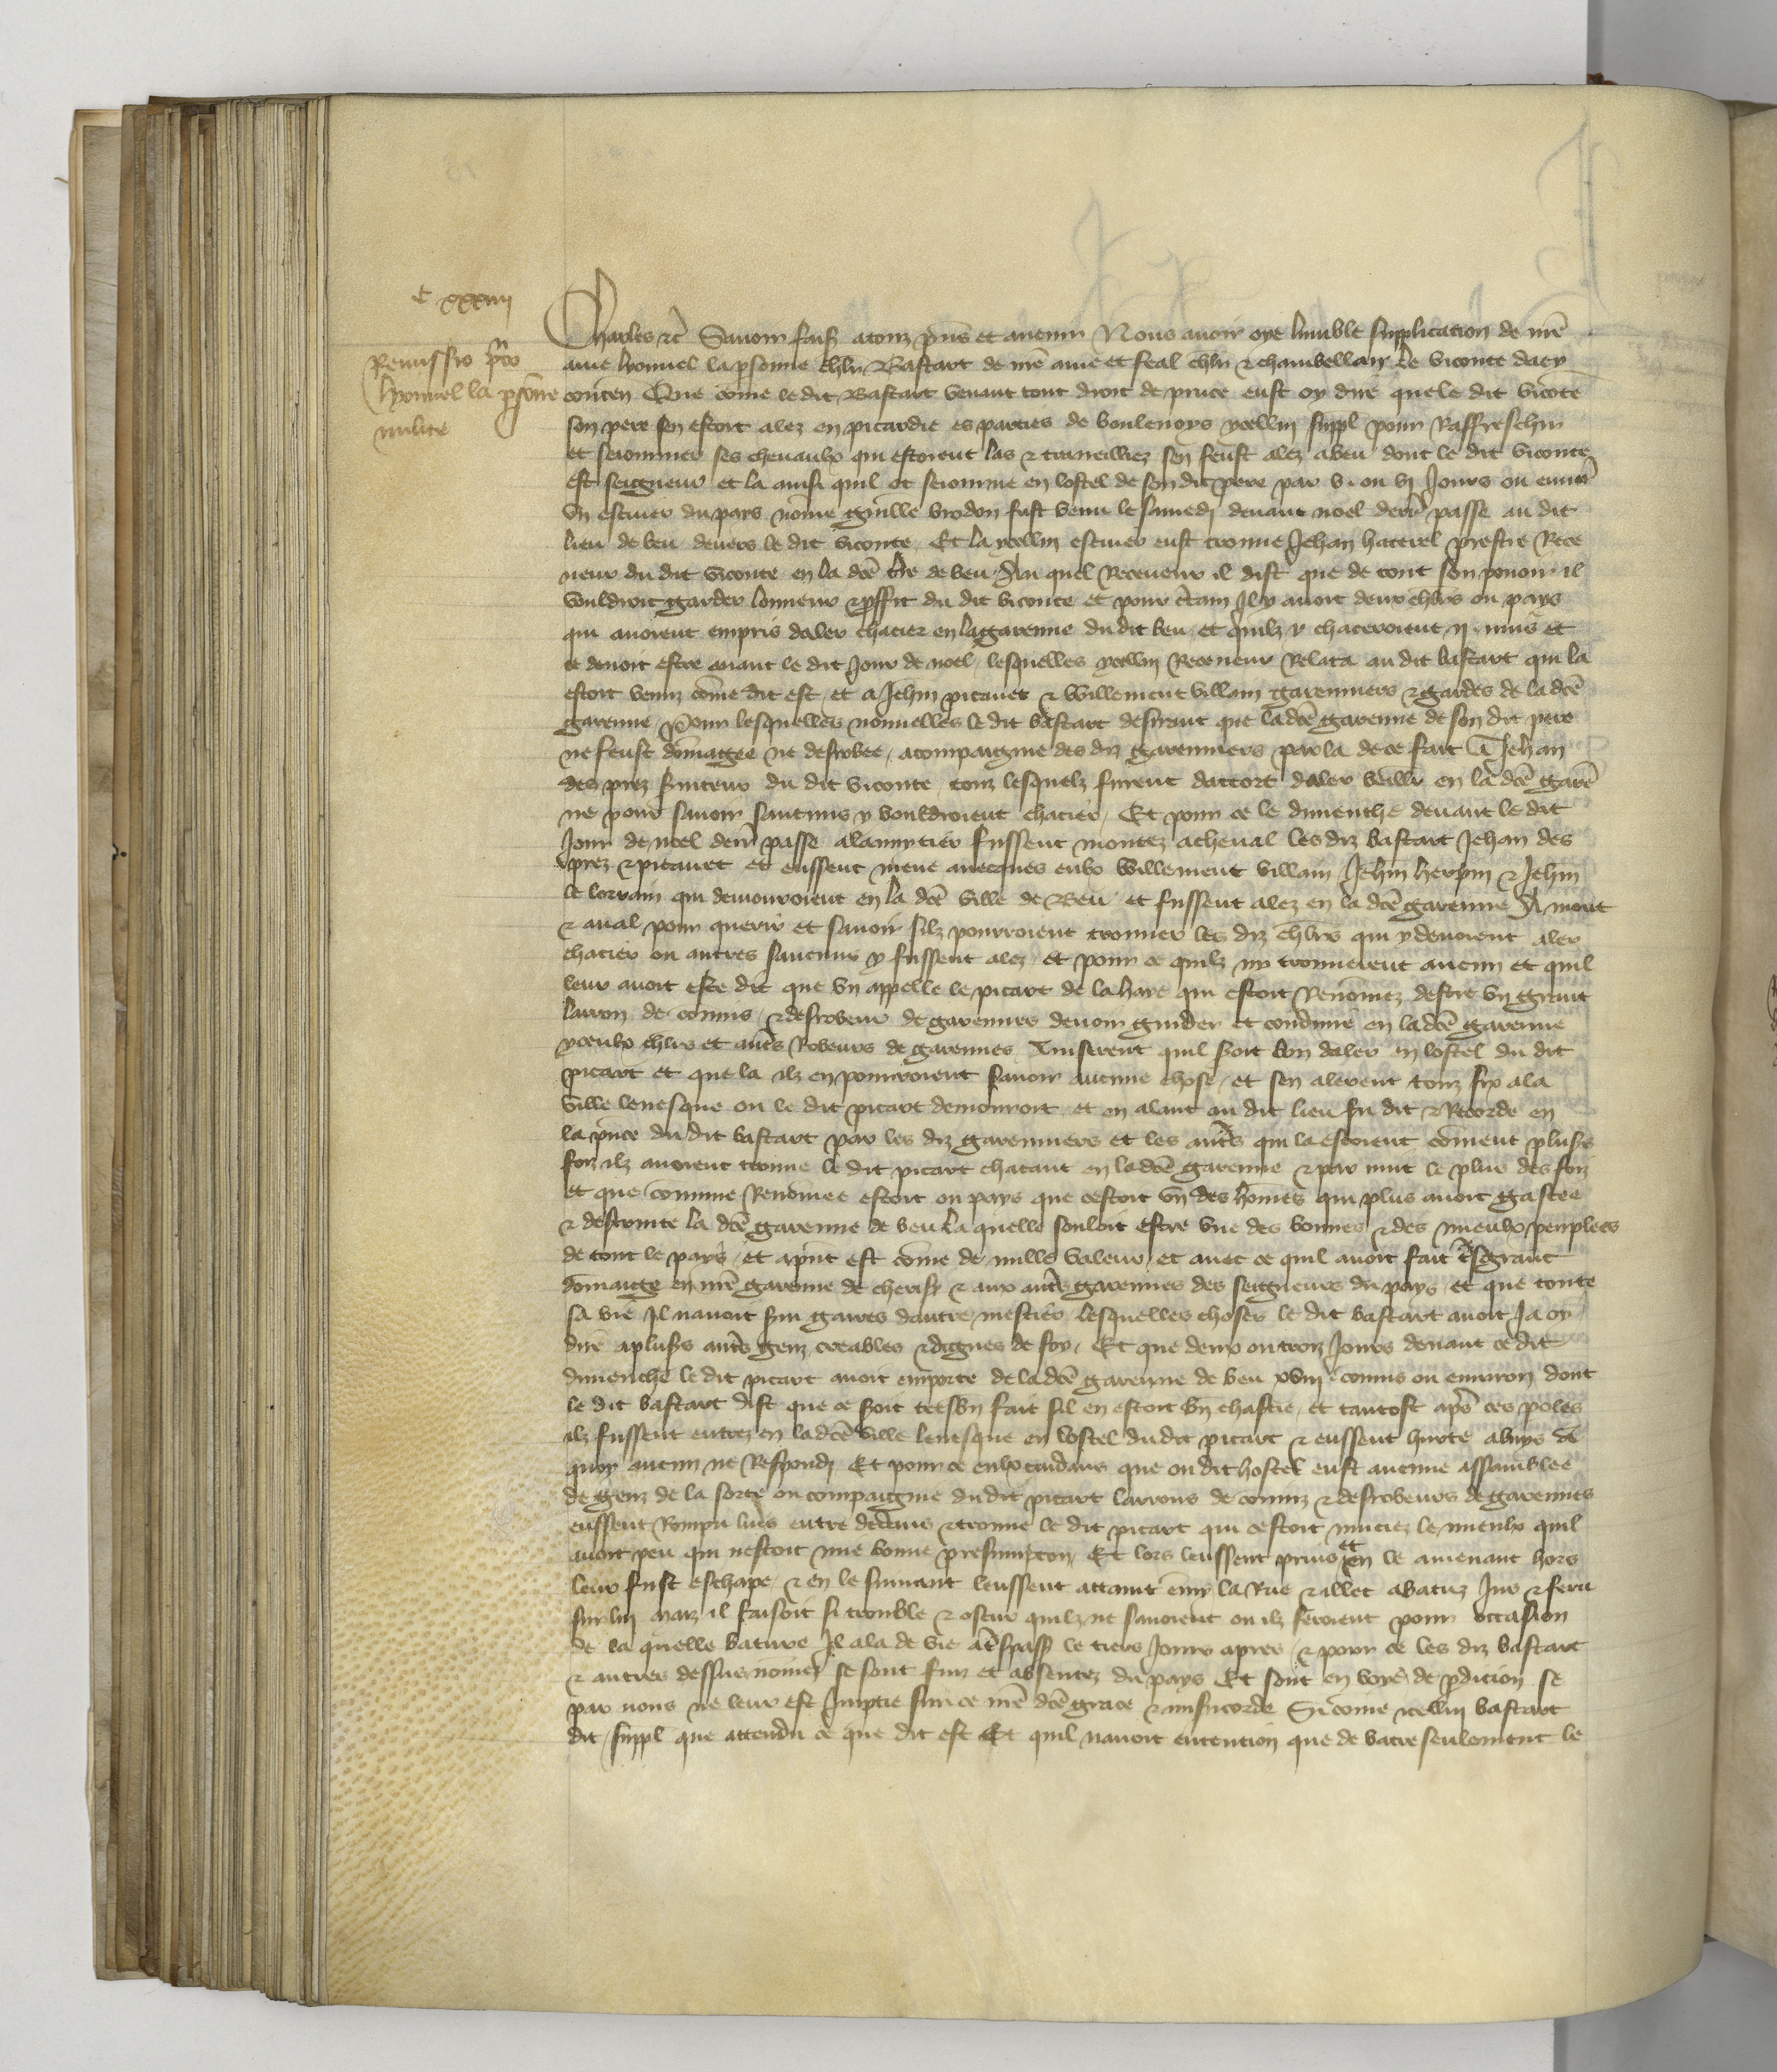 C xxxiiij
Remissio pro
Lyonnel la psonne
milite
Charles etc Savoir faiz a touz pns et avenir Nous avoir oye lumble supplicacion de nre
ame lyonnel la psonne chlr Bastart de nre ame et feal chlr & chambellan le viconte dacy
conten Que come le dit Bastart venant tout droit de pruce eust oy dire que le dit viconte
son pere sen estoit alez en picardie es parties de boulenoys ycellui suppl pour Raffreschir
et seiourner ses chevaulx qui estoient las & traveilliez sen feust alez a beu dont le dit viconte
est seigneur et la ainsi quil ot seiourne en lostel de son dit pere par v ou vj Jours ou environ
vn escuier du pays nome guille brodon fust venu le samedi devant noel derr passe au dit
lieu de beu devers le dit viconte Et la ycellui escuier eust trouve Jehan haterel prestre Rece
veur du dit viconte en la dce tre de beu Au quel Receveur il dist que de tout son povoir il
vouldroit garder lonneur & prffit du dit viconte et pour ctain Il y avoit deux chlrs ou pays
qui avoient empris daler chacier en la garenne du dit beu et quilz y chaceroient ij nuis et
ce devoit estre avant le dit Jour de noel lesquelles ycellui Receveur Relata au dit bastart qui la
estoit venuz come dit est et a Jehin picavet & Willemeut villain garenniers & gardes de la dce
garenne Pour lesquelles nouvelles le dit bastart desirant que la dce garenne de son dit pere
ne feust domagee ne desrobee acompaigne des diz garenniers parla de ce fait a Jehan
des prez serviteur du dit viconte touz lesquelz furent daccort daler veillr en la dce garen
ne pour savoir saucuns y vouldroient chacier Et pour ce le dimenche devant le dit
Jour de noel derr passe a lanuytier fussent montez a cheval les diz bastart Jehan des
prez & picavet et eussent mene avecques eulx Willemeut villain Jehin herpin & Jehin
le lorrain qui demouroient en la dce ville de Beu et fussent alez en la dce garenne A mont
& aval pour querir et savoir silz pourroient trouver les diz chlrs qui y devoient aler
chacier ou autres saucuns y fussent alez et pour ce quilz ny trouverent aucun et quil
leur avoit este dit que vn appelle le picart de la haye qui estoit Renomez destre vn grant
larron de connis & desrobeur de garennes devoit guider et conduire en la dce garenne
yceulx chlrs et autrs Robeurs de garennes Aviserent quil seroit bon daler en lostel du dit
picart et que la ilz en pourroient savoir aucune chose et sen alerent touz six a la
ville levesque ou le dit picart demouroit et en alant au dit lieu fu dit & Recorde en
la pnce du dit bastart par les diz garenniers et les autrs qui la estoient coment plusrs
foiz ilz avoient trouve le dit picart chacant en la dce garenne & par nuit le plus des foiz
et que comune Renomee estoit ou pays que cestoit vn des homes qui plus avoit gastee
& destruite la dce garenne de beu la quelle souloit estre vne des bonnes & des mieulx peuplees
de tout le pays et apnt est come de nulle valeur et avec ce quil avoit fait tsgrant
domaige en nre garenne de cherisy & aux autrs garennes des seigneurs du pays et que toute
sa vie Il navoit servi gaires dautre mestier lesquelles choses le dit bastart avoit Ja oy
dire a plusrs autrs genz creables & dignes de foy Et que deux ou troiz Jours devant ce dit
dimenche le dit picart avoit emporte de la dce garenne de beu xviij connis ou environ dont
le dit bastart dist que ce seroit tresbn fait sil en estoit bn chastie et tantost aprs ces poles
ilz fussent entrez en la dce ville levesque en lostel du dit picart & eussent hurte a luys de
quoy aucun ne Respondi Et pour ce eulx cuidans que ou dit hostel eust aucune assamblee
de genz de la sorte ou compaignie du dit picart larrons de conniz & desrobeurs de garennes
eussent Rompu luis entre dedans & trouve le dit picart qui cestoit muciez le mieulx quil
avoit peu qui nestoit mie bonne presumpcon Et lors leussent prins et en le amenant hors
leur fust eschape & en le suivant leussent attaint emy la Rue & illec abatuz Jus & feru
sur lui maiz il faisoit si trouble & oscur quilz ne savoient ou ilz feroient pour occasion
de la quelle bature Il ala de vie a trespass le tiers Jours apres & pour ce les diz bastart
& autres dessusnomes se sont fuiz et absentez du pays Et sont en voye de pdicion se
par nous ne leur est Jmptie sur ce nre dce grace & misericorde Si come icellui bastart
dit suppl que attendu ce que dit est Et quil navoit entention que de batre seulement le